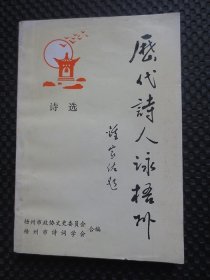 歷代詩人詠梧州
诗选
鍾家佐題
梧州市政协文史委员会
梧州市诗词学会
合编